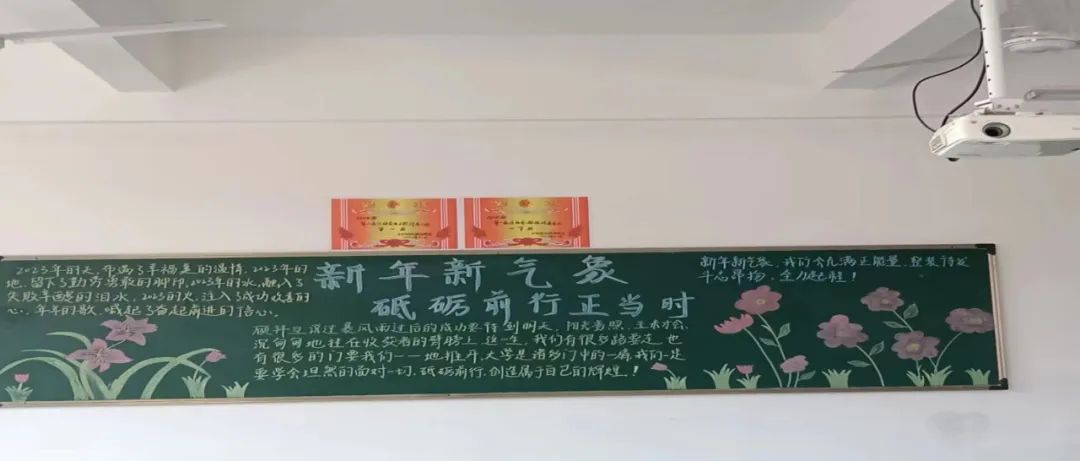 第一名
一等奖
2023年的天,布满了幸福是的温情,2023年的
地,留下了勤劳勇敢的脚印,2023年的水,融入了
失败辛酸的泪水,2023的火,注入了成功收喜的
心,年年的歌,唤起了奋起前进的信心。
新年新气象
砥砺前行正当时
过暴风雨过后的成功要待到明天,阳光普照,
沉甸甸地挂在收获者的臂膀上,这一生,我们有很多路要走,也
有很多的门要我们一一地推开,大学是诸多门中的一扇,我们是
要学会坦然的面对一切,砥砺前行,创造属于自己的辉煌!
新年新气象,我们会充满正能量,整装待发
斗志昂扬,全力起航!